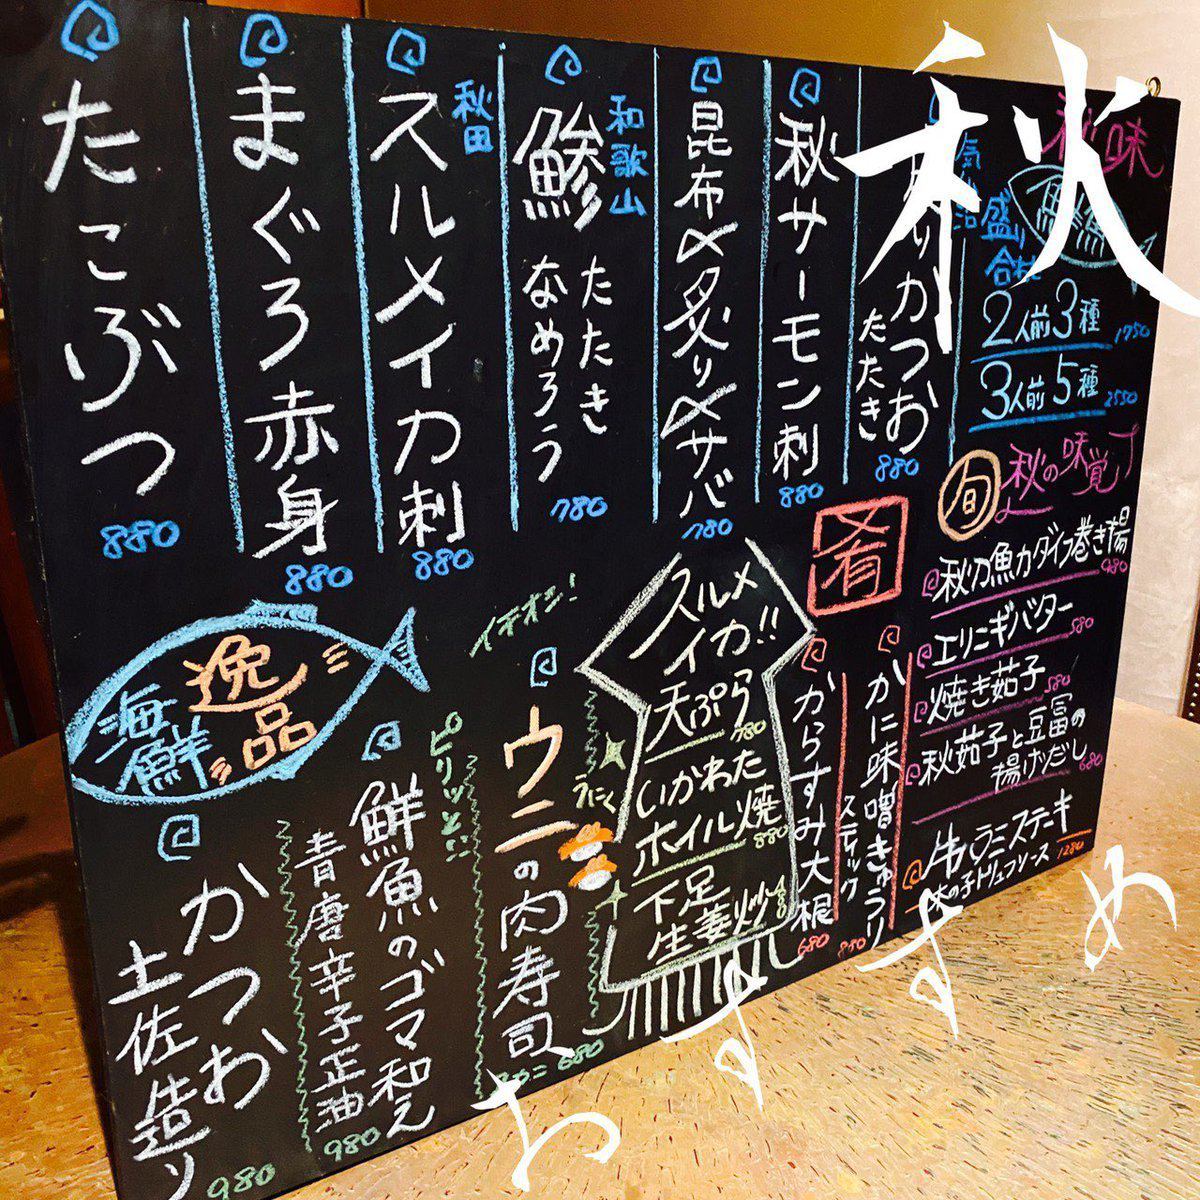 秋
おすすめ
秋味
鮮魚
盛り
合わせ
2人前3種
1750
3人前5種
2550
りかつお
たたき
880
秋サーモン刺
880
昆布〆炙り〆サバ
780
和歌山
鯵
たたき
なめろう
780
秋田
スルメイカ刺
880
まぐろ赤身
880
たこぶつ
880
旬
秋の味覚
秋刀魚カダイフ巻き揚
980
エリンギバター
580
焼き茄子
580
秋茄子と豆冨の
揚げだし
680
牛ハラミステーキ
きの子トリュフソース
1280
肴
かに味噌きゅうり
スティック
880
からすみ大根
680
スルメ
イカ!!
天ぷら
780
いかわた
ホイル焼
880
下足
生姜炒
イチオシ!
うにく
ウニの肉寿司
680
ピリッと
鮮魚のゴマ和え
青唐辛子正油
980
海鮮
逸品
かつお
土佐造り
980